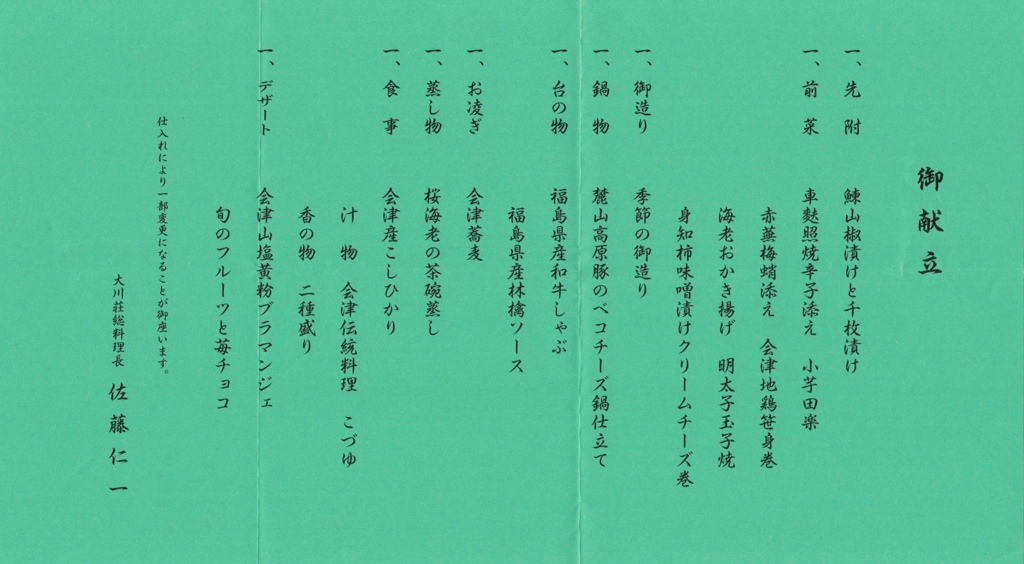 御献立
一、先附　鰊山椒漬けと千枚漬け
一、前菜　車麩照焼辛子添え　小芋田楽
赤蕪梅蛸添え　会津地鶏笹身巻
海老おかき揚げ　明太子玉子焼
身知柿味噌漬けクリームチーズ巻
一、御造り　季節の御造り
一、鍋物　麓山高原豚のベコチーズ鍋仕立て
一、台の物　福島県産和牛しゃぶ
福島県産林檎ソース
一、お凌ぎ　会津蕎麦
一、蒸し物　桜海老の茶碗蒸し
一、食事　会津産こしひかり
汁物　会津伝統料理　こづゆ
香の物　二種盛り
一、デザート　会津山塩黄粉ブラマンジェ
旬のフルーツと苺チョコ
仕入れにより一部変更になることが御座います。
大川荘総料理長　佐藤仁一